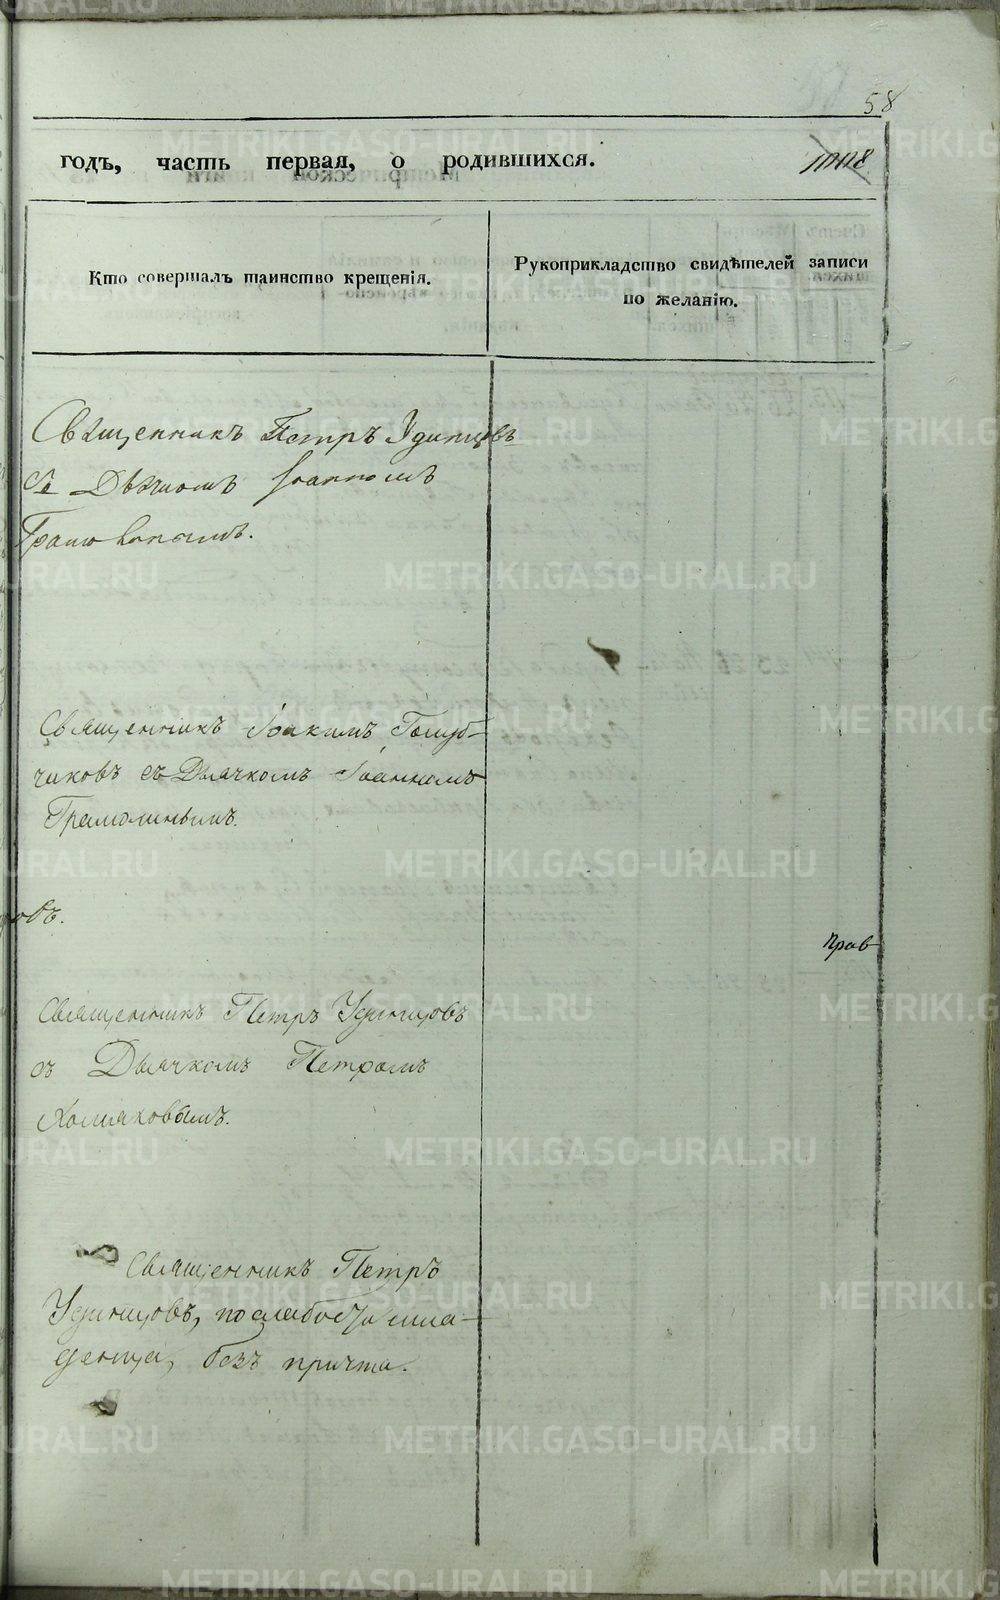 58
годъ, часть первая, о родившихся.
Кто совершалъ таинство крещенія.
Рукоприкладство свидѣтелей записи
по желанію.
Священникъ Петръ Удинцовъ
съ Дьячкомъ Іоанномъ
Священникъ Іоакимъ Голуб-
чиковъ съ Дьячкомъ Іоанномъ
Грамолинымъ.
овъ.
прав
Священникъ Петръ Удинцовъ
съ Дьячкомъ Петромъ
Хомяковымъ.
Священникъ Петръ
Удинцовъ, по слабости мла-
денца, безъ причта.
METRIKI.GASO-URAL.RU